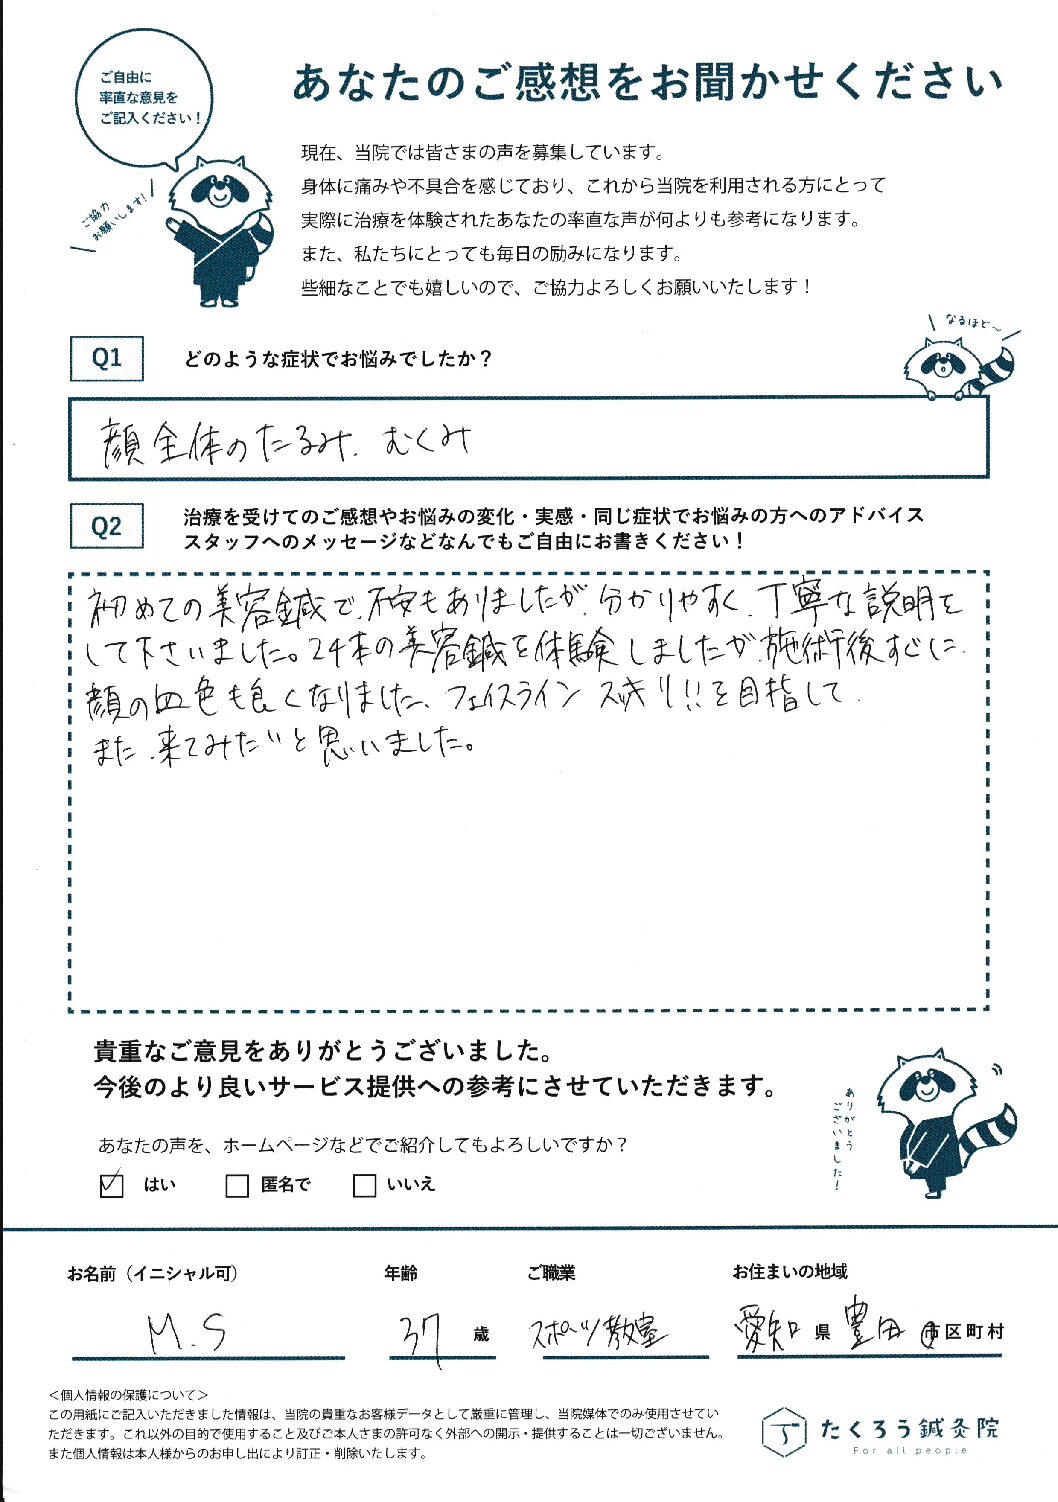 ご自由に
率直な意見を
ご記入ください！
ご協力
お願いします！
あなたのご感想をお聞かせください
現在、当院では皆さまの声を募集しています。
身体に痛みや不具合を感じており、これから当院を利用される方にとって
実際に治療を体験されたあなたの率直な声が何よりも参考になります。
また、私たちにとっても毎日の励みになります。
些細なことでも嬉しいので、ご協力よろしくお願いいたします！
なるほど〜
Q1 どのような症状でお悩みでしたか？
顔全体のたるみ、むくみ
Q2 治療を受けてのご感想やお悩みの変化・実感・同じ症状でお悩みの方へのアドバイス
スタッフへのメッセージなどなんでもご自由にお書きください！
初めての美容鍼で、不安もありましたが、分かりやすく、丁寧な説明を
して下さいました。24本の美容鍼を体験しましたが、施術後すぐに、
顔の血色も良くなりました、フェイスライン スッキリ!!を目指して、
また、来てみたいと思いました。
貴重なご意見をありがとうございました。
今後のより良いサービス提供への参考にさせていただきます。
ありがとう
ございました！
あなたの声を、ホームページなどでご紹介してもよろしいですか？
はい 匿名で いいえ
お名前（イニシャル可） 年齢 ご職業 お住まいの地域
M.S 37 歳 スポーツ教室 愛知 県 豊田 市区町村
＜個人情報の保護について＞
この用紙にご記入いただきました情報は、当院の貴重なお客様データとして厳重に管理し、当院媒体でのみ使用させてい
ただきます。これ以外の目的で使用すること及びご本人さまの許可なく外部への開示・提供することは一切ございません。
また個人情報は本人様からのお申し出により訂正・削除いたします。
たくろう鍼灸院
For all people